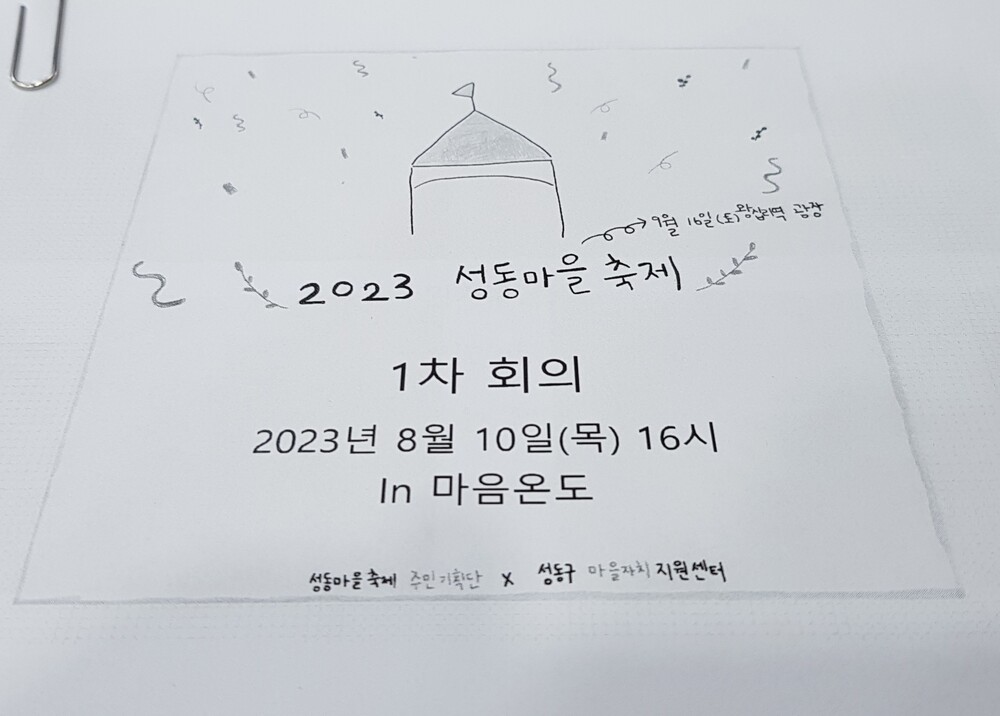 9월 16일(토) 왕십리역 광장
2023 성동마을 축제
1차 회의
2023년 8월 10일(목) 16시
In 마음온도
성동마을축제 주민기획단 x 성동구 마을자치 지원센터